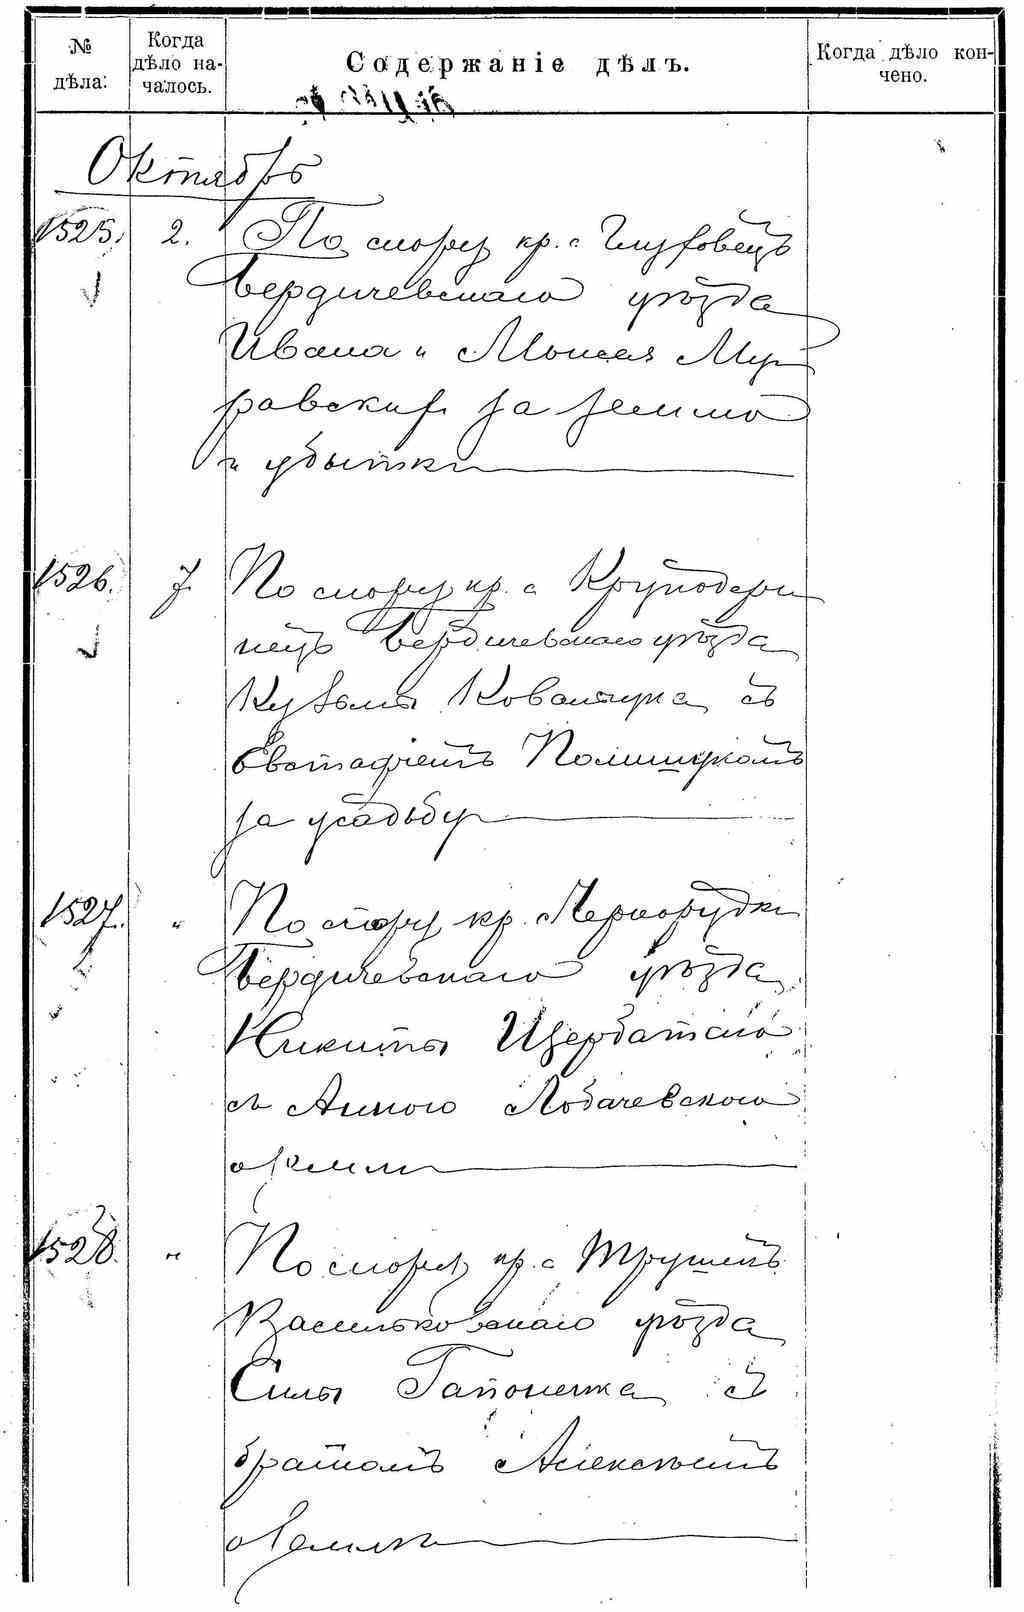 № дѣла:
Когда дѣло началось.
Содержаніе дѣлъ.
Когда дѣло кончено.
Октябрь
1525. 2. По спору кр. с Глуховецъ
Бердичевскаго уѣзда
Ивана и Моисея Му-
равских за землю
и убытки
1526. 7. По спору кр. с Круподери
нецъ Бердичевскаго уѣзда
Кузьмы Ковальчука съ
Евстафіемъ Полищукомъ
за усадьбу
1527. " По спору кр. Чернорудки
Бердичевскаго уѣзда
Никиты Щербатаго
съ Анною Лобачевского
о земли
1528. " По спору кр. с Трушекъ
Васильковскаго уѣзда
Силы Гапоненка съ
братомъ Алексѣемъ
о земли